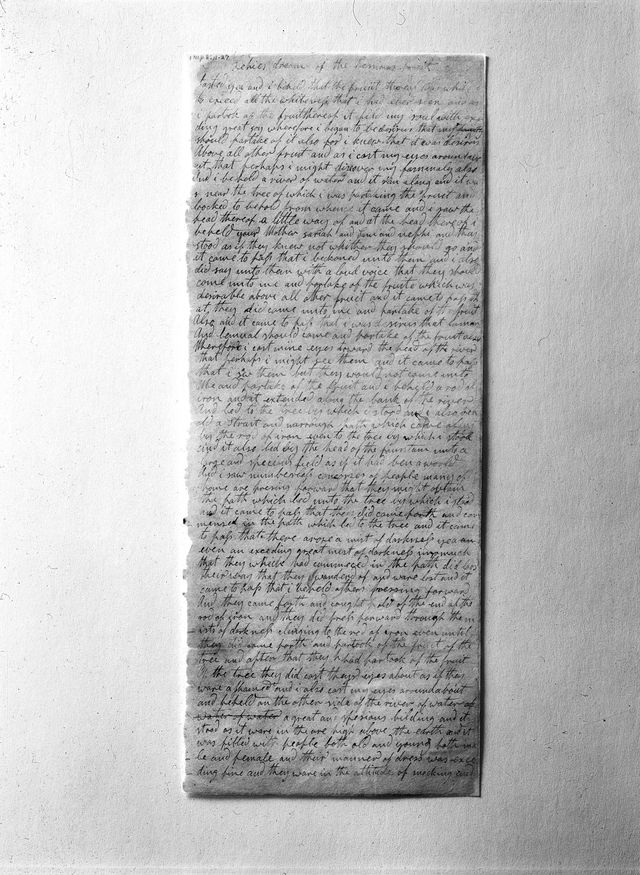 1 Nep 8:11-27
Lehies dream of the
tasted yea and i beheld that the fruit thereof was whit
to exceed all the whiteness that i had ever seen and as
i partook of the fruit thereof it filld my soul with exce
ding great joy wherefore i began to be desirus that my
should partake of it also for i knew that it was desirous
Above all other fruit and as i cast my eyes around abo
ut that perhaps i might discover my fammaly also
And i beheld a river of water and it ran along and it wa
s near the tree of which i was partaking the fruit an
looked to behold from whence it came and i saw the
head thereof a little way of and at the head thereof i
beheld your Mother sariah and sam and nephi and thay
stood as if they knew not whether they should go and
it came to pass that i beckoned unto them and i also
did say unto them with a loud voice that they should
come unto me and partake of the fruite which was
desirable above all other fruit and it came to pass th
at, they did came unto me and partake of the fruit
Also and it came to pass that i was desirus that laman
And lemual should came and partake of the fruit also
therefore i cast mine eyes toward the head of the river
that perhaps i might see them and it came to pass
that i saw them but they would not came unto
Me and partake of the fruit and i beheld a rod of
iron and it extended along the bank of the river
And led to the tree by which i stood and i also beh
eld a strait and narrough path which came along
by the rod of iron even to the tree by which i stood
and it also led by the head of the fountain unto a
large and specious field as if it had ben a world
and i saw numberless concorses of people many of
whome are presing forward that they might obtain
the path which led unto the tree by which i stood
and it came to pass that they did came forth and com
menced in the path which led to the tree and it came
to pass that there arose a mist of darkness yea an
even an exceding great mist of darkness insomuch
that they whoe had commenced in the path did loos
their way that they wanderd of and ware lost and it
came to pass that i beheld others pressing forward
And they came forth and caught hold of the end of the
rod of iron and they did press forward through the m
ists of darkness clinging to the rod of iron even until
they did came forth and partook of the fruit of the
tree and after that they had partook of the fruit
Of the tree they did cast there eyes about as if they
ware ashamed and i also cast my eyes around about
and beheld on the other side of the river of water
water of water a great an spesious bilding and it
stood as it ware in the are high above the earth and it
was filled with people both old and young both ma
le and female and their manner of dress was exce
ding fine and they ware in the attitude of mocking and